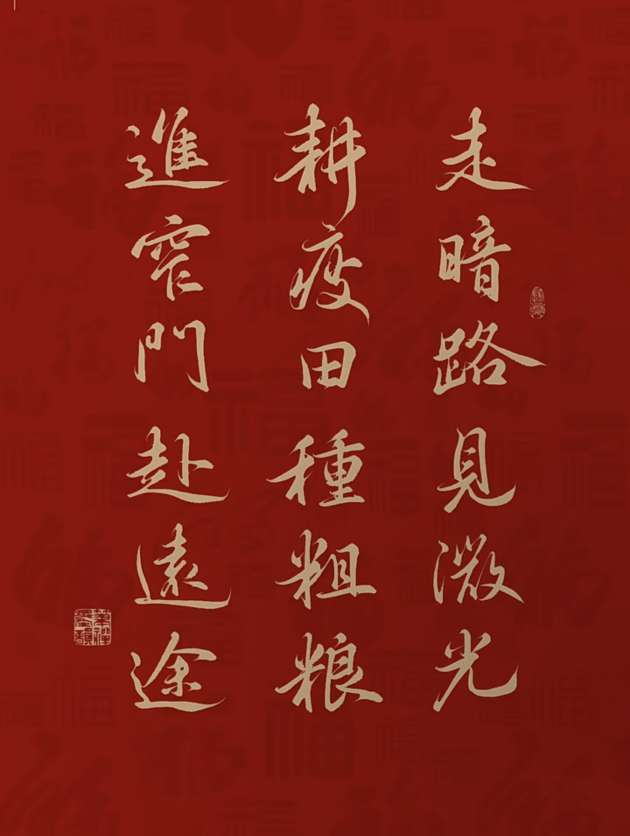 走暗路見微光
耕疫田種粗粮
進窄門赴遠途